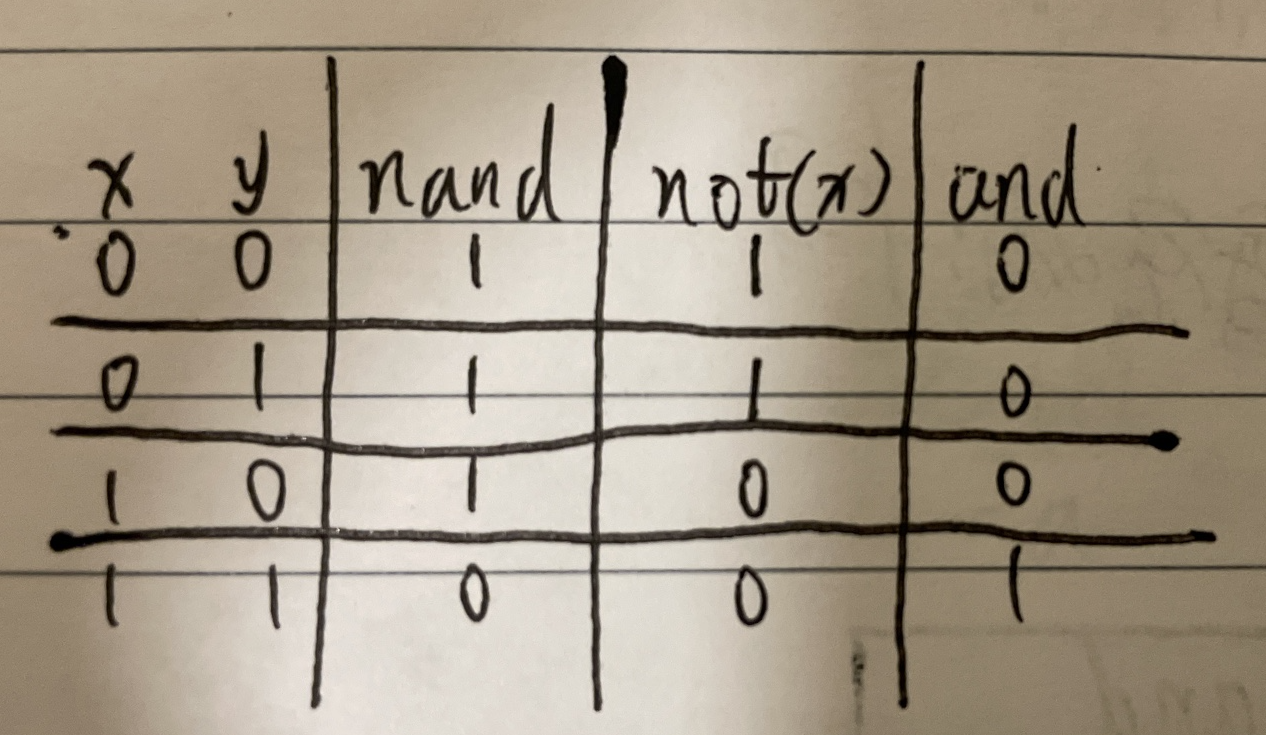 x y nand not(x) and
0 0 1 1 0
0 1 1 1 0
1 0 1 0 0
1 1 0 0 1